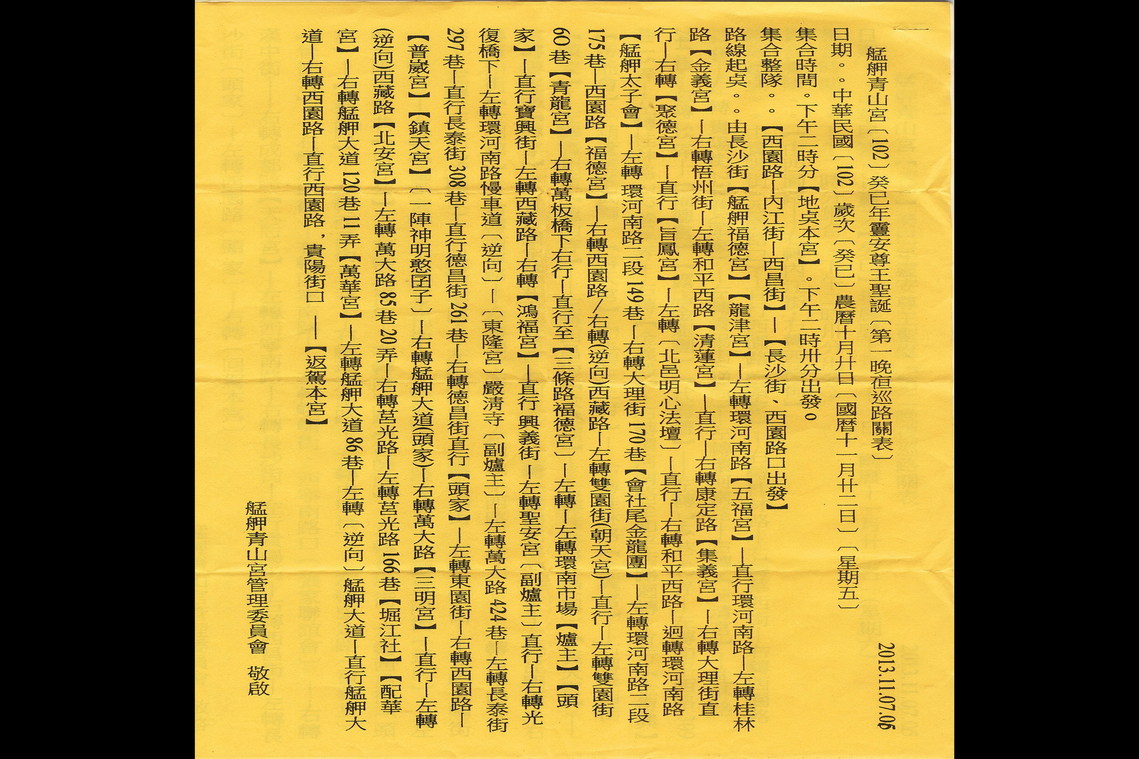 艋舺青山宮〔102〕癸巳年靈安尊王聖誕〔第一晚夜巡路關表〕
2013.11.07.06
日期。。中華民國〔102〕歲次〔癸巳〕農曆十月廿日〔國曆十一月廿二日〕〔星期五〕
集合時間。下午二時分【地點本宮】。下午二時卅分出發。
集合整隊。。【西園路—內江街—西昌街】—【長沙街、西園路口出發】
路線起點。。由長沙街【艋舺福德宮】【龍津宮】—左轉環河南路【五福宮】—直行環河南路—左轉桂林
路【金義宮】—右轉梧州街—左轉和平西路【清蓮宮】—直行—右轉康定路【集義宮】—右轉大理街直
行—右轉【聚德宮】—直行【旨鳳宮】—左轉〔北邑明心法壇〕—直行—右轉和平西路—迴轉環河南路
【艋舺太子會】—左轉 環河南路二段 149 巷—右轉大理街 170 巷【會社尾金龍團】—左轉環河南路二段
175 巷—西園路【福德宮】—右轉西園路/右轉(逆向)西藏路—左轉雙園街(朝天宮)—直行—左轉雙園街
60 巷【青龍宮】—右轉萬板橋下右行—直行至【三條路福德宮】—左轉—左轉環南市場【爐主】【頭
家】—直行寶興街—左轉西藏路—右轉【鴻福宮】—直行 興義街—左轉聖安宮〔副爐主〕直行—右轉光
復橋下—左轉環河南路慢車道〔逆向〕—〔東隆宮〕嚴清寺〔副爐主〕—左轉萬大路 424 巷—左轉長泰街
297 巷—直行長泰街 308 巷—直行德昌街 261 巷—右轉德昌街直行【頭家】—左轉東園街—右轉西園路—
【普崴宮】【鎮天宮】〔一陣神明憨囝子〕—右轉艋舺大道(頭家)—右轉萬大路【三明宮】—直行—左轉
(逆向)西藏路【北安宮】—左轉 萬大路 85 巷 20 弄—右轉莒光路—左轉莒光路 166 巷【堀江社】【配華
宮】—右轉艋舺大道 120 巷 11 弄【萬華宮】—左轉艋舺大道 86 巷—左轉〔逆向〕艋舺大道—直行艋舺大
道—右轉西園路—直行西園路，貴陽街口 —【返駕本宮】
艋舺青山宮管理委員會 敬啟